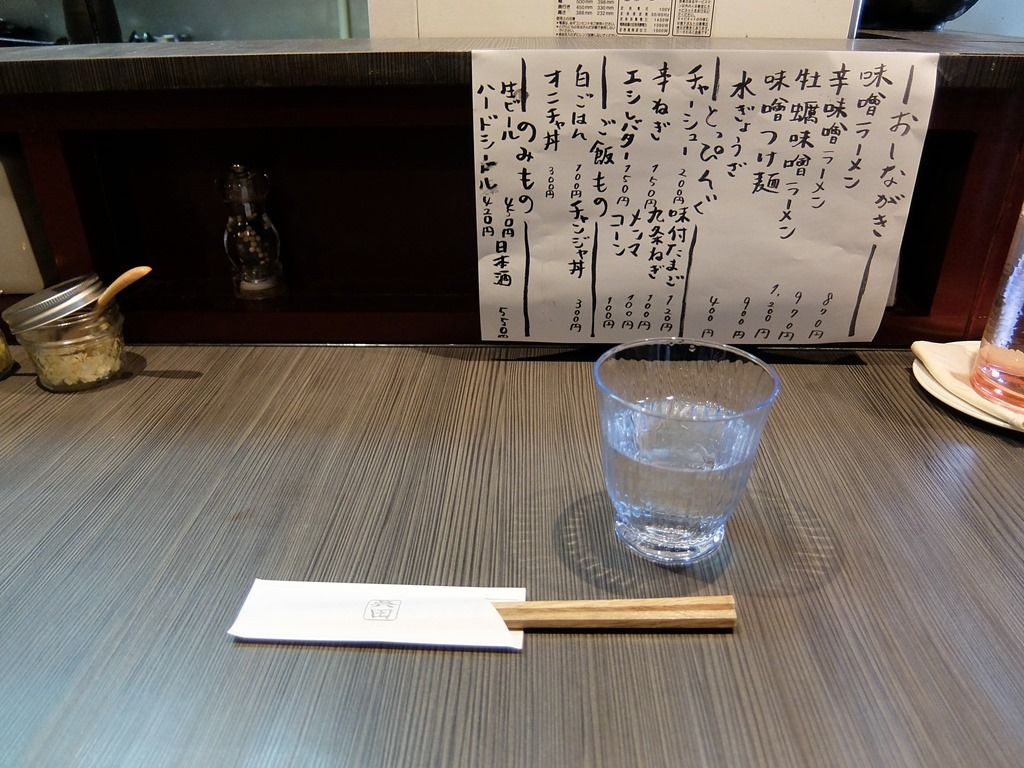 おしながき
味噌ラーメン 870円
辛味噌ラーメン 970円
牡蠣味噌ラーメン 1,200円
味噌つけ麺 900円
水ぎょうざ 400円
とっぴんぐ
チャーシュー 200円 味付たまご 120円
辛ねぎ 150円 九条ねぎ 100円
エシレバター 150円 メンマ 100円
コーン 100円
ご飯もの
白ごはん 100円 チャンジャ丼 300円
オニチャ丼 300円
のみもの
生ビール 450円 日本酒 550円
ハードシードル 420円